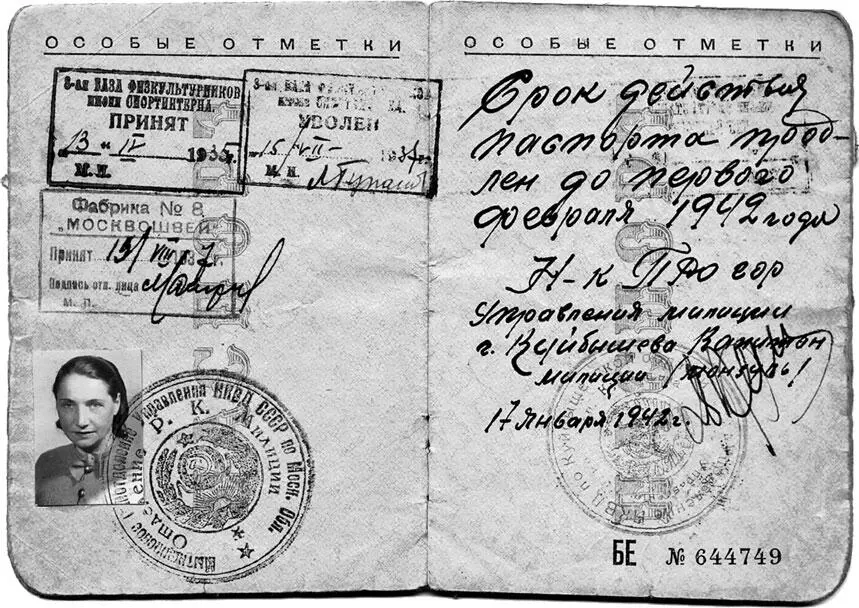 ОСОБЫЕ ОТМЕТКИ
3-ая БАЗА ФИЗКУЛЬТУРНИКОВ
ИМЕНИ СПОРТИНТЕРНА
ПРИНЯТ
13 " IV 193
М. П.
3-ая БАЗА
УВОЛЕН
15/VII- 193 г.
М. П.
Фабрика № 8
"МОСКВОШВЕЙ"
Принят 15/VIII 1937г.
Подпись отв. лица
М. П.
Мытищинское Управления НКВД СССР по Моск. Обл.
Отделение Р. К. Милиции
ОСОБЫЕ ОТМЕТКИ
Срок действия
паспорта прод-
лен до первого
февраля 1942 года
Н-к ПАО гор
Управления милиции
г. Куйбышева Капитан
милиции
17 Января 1942 г.
БЕ № 644749